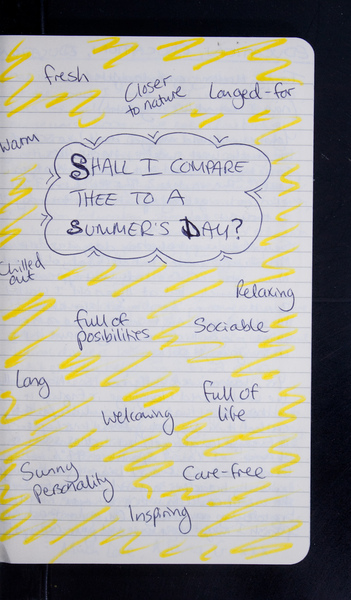 fresh
Closer
to nature
Longed-for
Warm
SHALL I COMPARE
THEE TO A
SUMMER'S DAY?
Chilled
out
Relaxing
full of
posibilities
Sociable
Long
Welcoming
full of
life
Sunny
Personality
Care-free
Inspiring